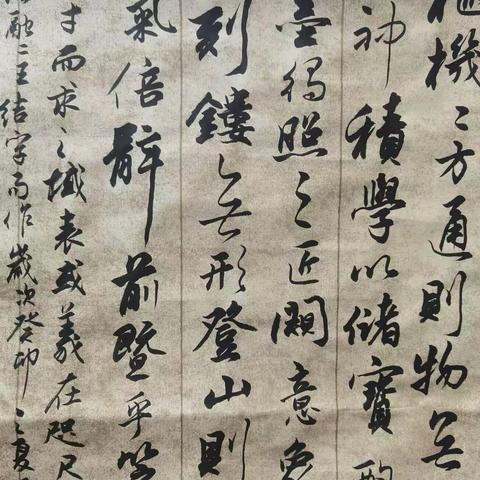 樞機〻方通則物无
神積學以儲寶酌
宰獨照之匠闚意象
刻鏤无形登山則
氣倍辭前暨乎篇
寸而求之域表或義在咫尺
融二王結字而作歲次癸卯之夏